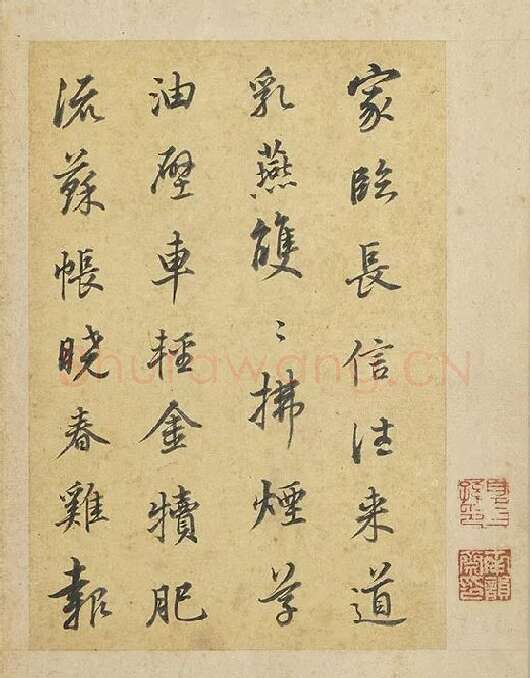 家臨長信往来道
乳燕雙〻拂煙草
油壁車輕金犢肥
流蘇帳曉春雞報